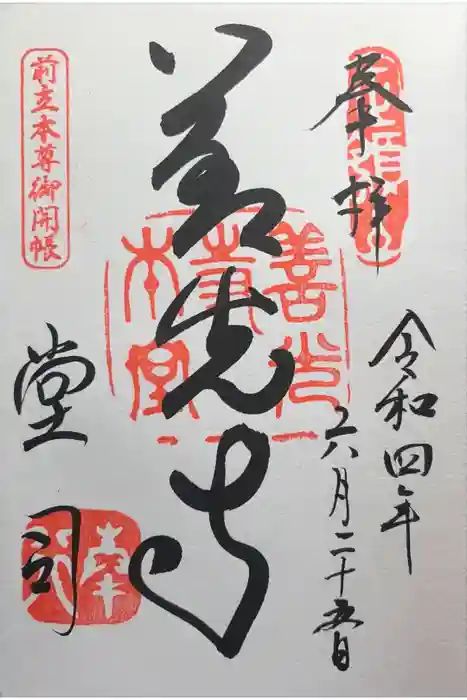 奉拝
令和四年
六月二十五日
善光寺
前立本尊御開帳
堂司